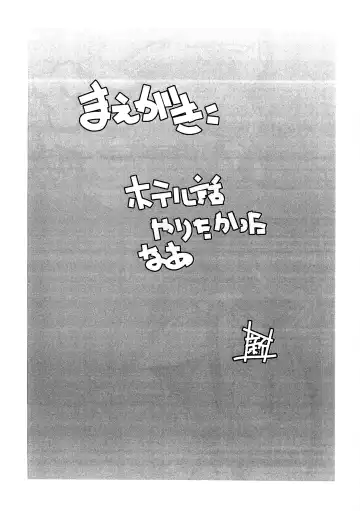 まえがき:
ホテル話
やりたかった
なあ